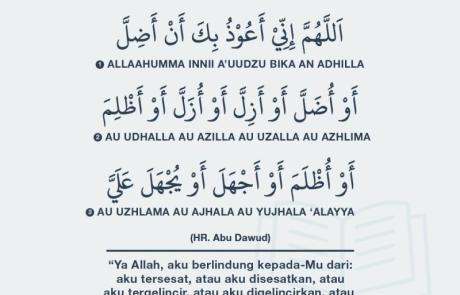 اَللَّهُمَّ إِنِّيْ أَعُوْذُ بِكَ أَنْ أَضِلَّ
1 ALLAAHUMMA INNII A'UUDZU BIKA AN ADHILLA
أَوْ أُضَلَّ أَوْ أَزِلَّ أَوْ أُزَلَّ أَوْ أَظْلِمَ
2 AU UDHALLA AU AZILLA AU UZALLA AU AZHLIMA
أَوْ أُظْلَمَ أَوْ أَجْهَلَ أَوْ يُجْهَلَ عَلَيَّ
3 AU UZHLAMA AU AJHALA AU YUJHALA ‘ALAYYA
(HR. Abu Dawud)
“Ya Allah, aku berlindung kepada-Mu dari:
aku tersesat, atau aku disesatkan, atau
aku tergelincir, atau aku digelincirkan, atau